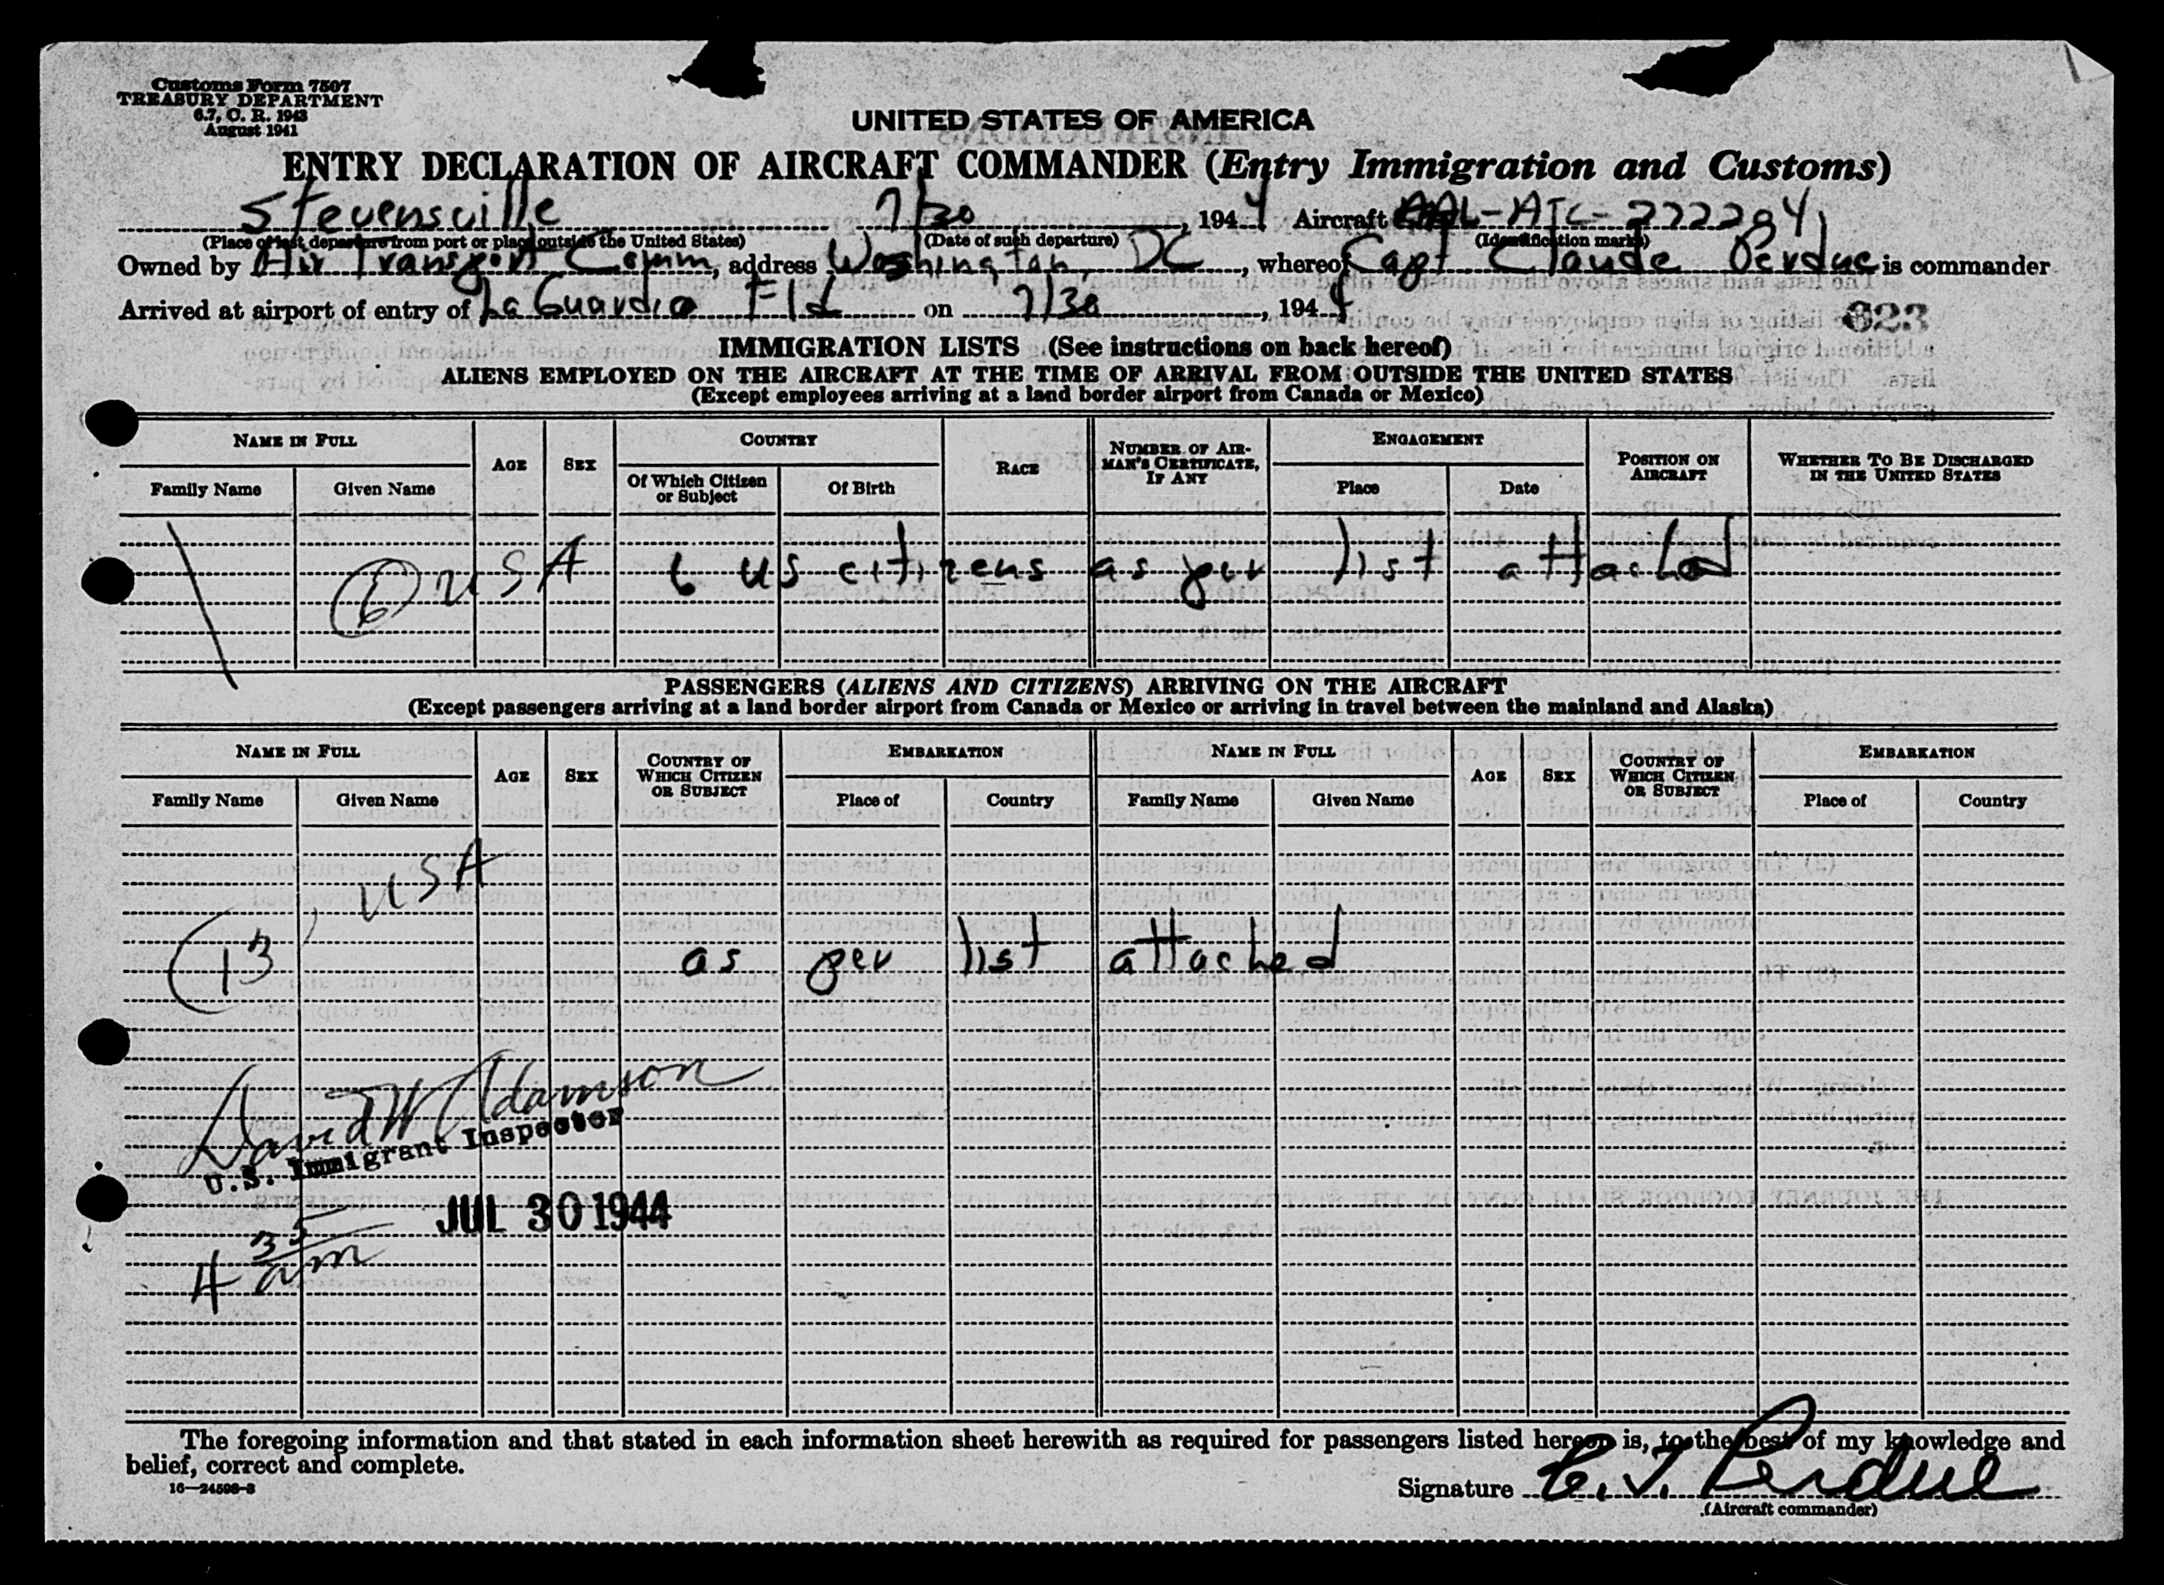 Customs Form 7507
TREASURY DEPARTMENT
6.7, C. R. 1943
August 1941
UNITED STATES OF AMERICA
ENTRY DECLARATION OF AIRCRAFT COMMANDER (Entry Immigration and Customs)
Stevensville 7/30, 1944 Aircraft AAL-ATC-2722284
(Place of last departure from port or place outside the United States) (Date of such departure) (Identification marks)
Owned by Air Transport Comm, address Washington, DC, whereof Capt Claude Perdue is commander
Arrived at airport of entry of La Guardia Fld on 7/30, 1944
623
IMMIGRATION LISTS (See instructions on back hereof)
ALIENS EMPLOYED ON THE AIRCRAFT AT THE TIME OF ARRIVAL FROM OUTSIDE THE UNITED STATES
(Except employees arriving at a land border airport from Canada or Mexico)
NAME IN FULL AGE SEX COUNTRY RACE NUMBER OF AIRMAN'S CERTIFICATE, IF ANY ENGAGEMENT POSITION ON AIRCRAFT WHETHER TO BE DISCHARGED IN THE UNITED STATES
Family Name Given Name Of Which Citizen or Subject Of Birth Place Date
6 USA 6 US citizens as per list attached
PASSENGERS (ALIENS AND CITIZENS) ARRIVING ON THE AIRCRAFT
(Except passengers arriving at a land border airport from Canada or Mexico or arriving in travel between the mainland and Alaska)
NAME IN FULL AGE SEX COUNTRY OF WHICH CITIZEN OR SUBJECT EMBARKATION NAME IN FULL AGE SEX COUNTRY OF WHICH CITIZEN OR SUBJECT EMBARKATION
Family Name Given Name Place of Country Family Name Given Name Place of Country
USA
13 as per list attached
David W Adamson
U.S. Immigrant Inspector
JUL 30 1944
4 35 am
The foregoing information and that stated in each information sheet herewith as required for passengers listed hereon is, to the best of my knowledge and
belief, correct and complete.
16—24598-3
Signature C. T. Perdue
(Aircraft commander)